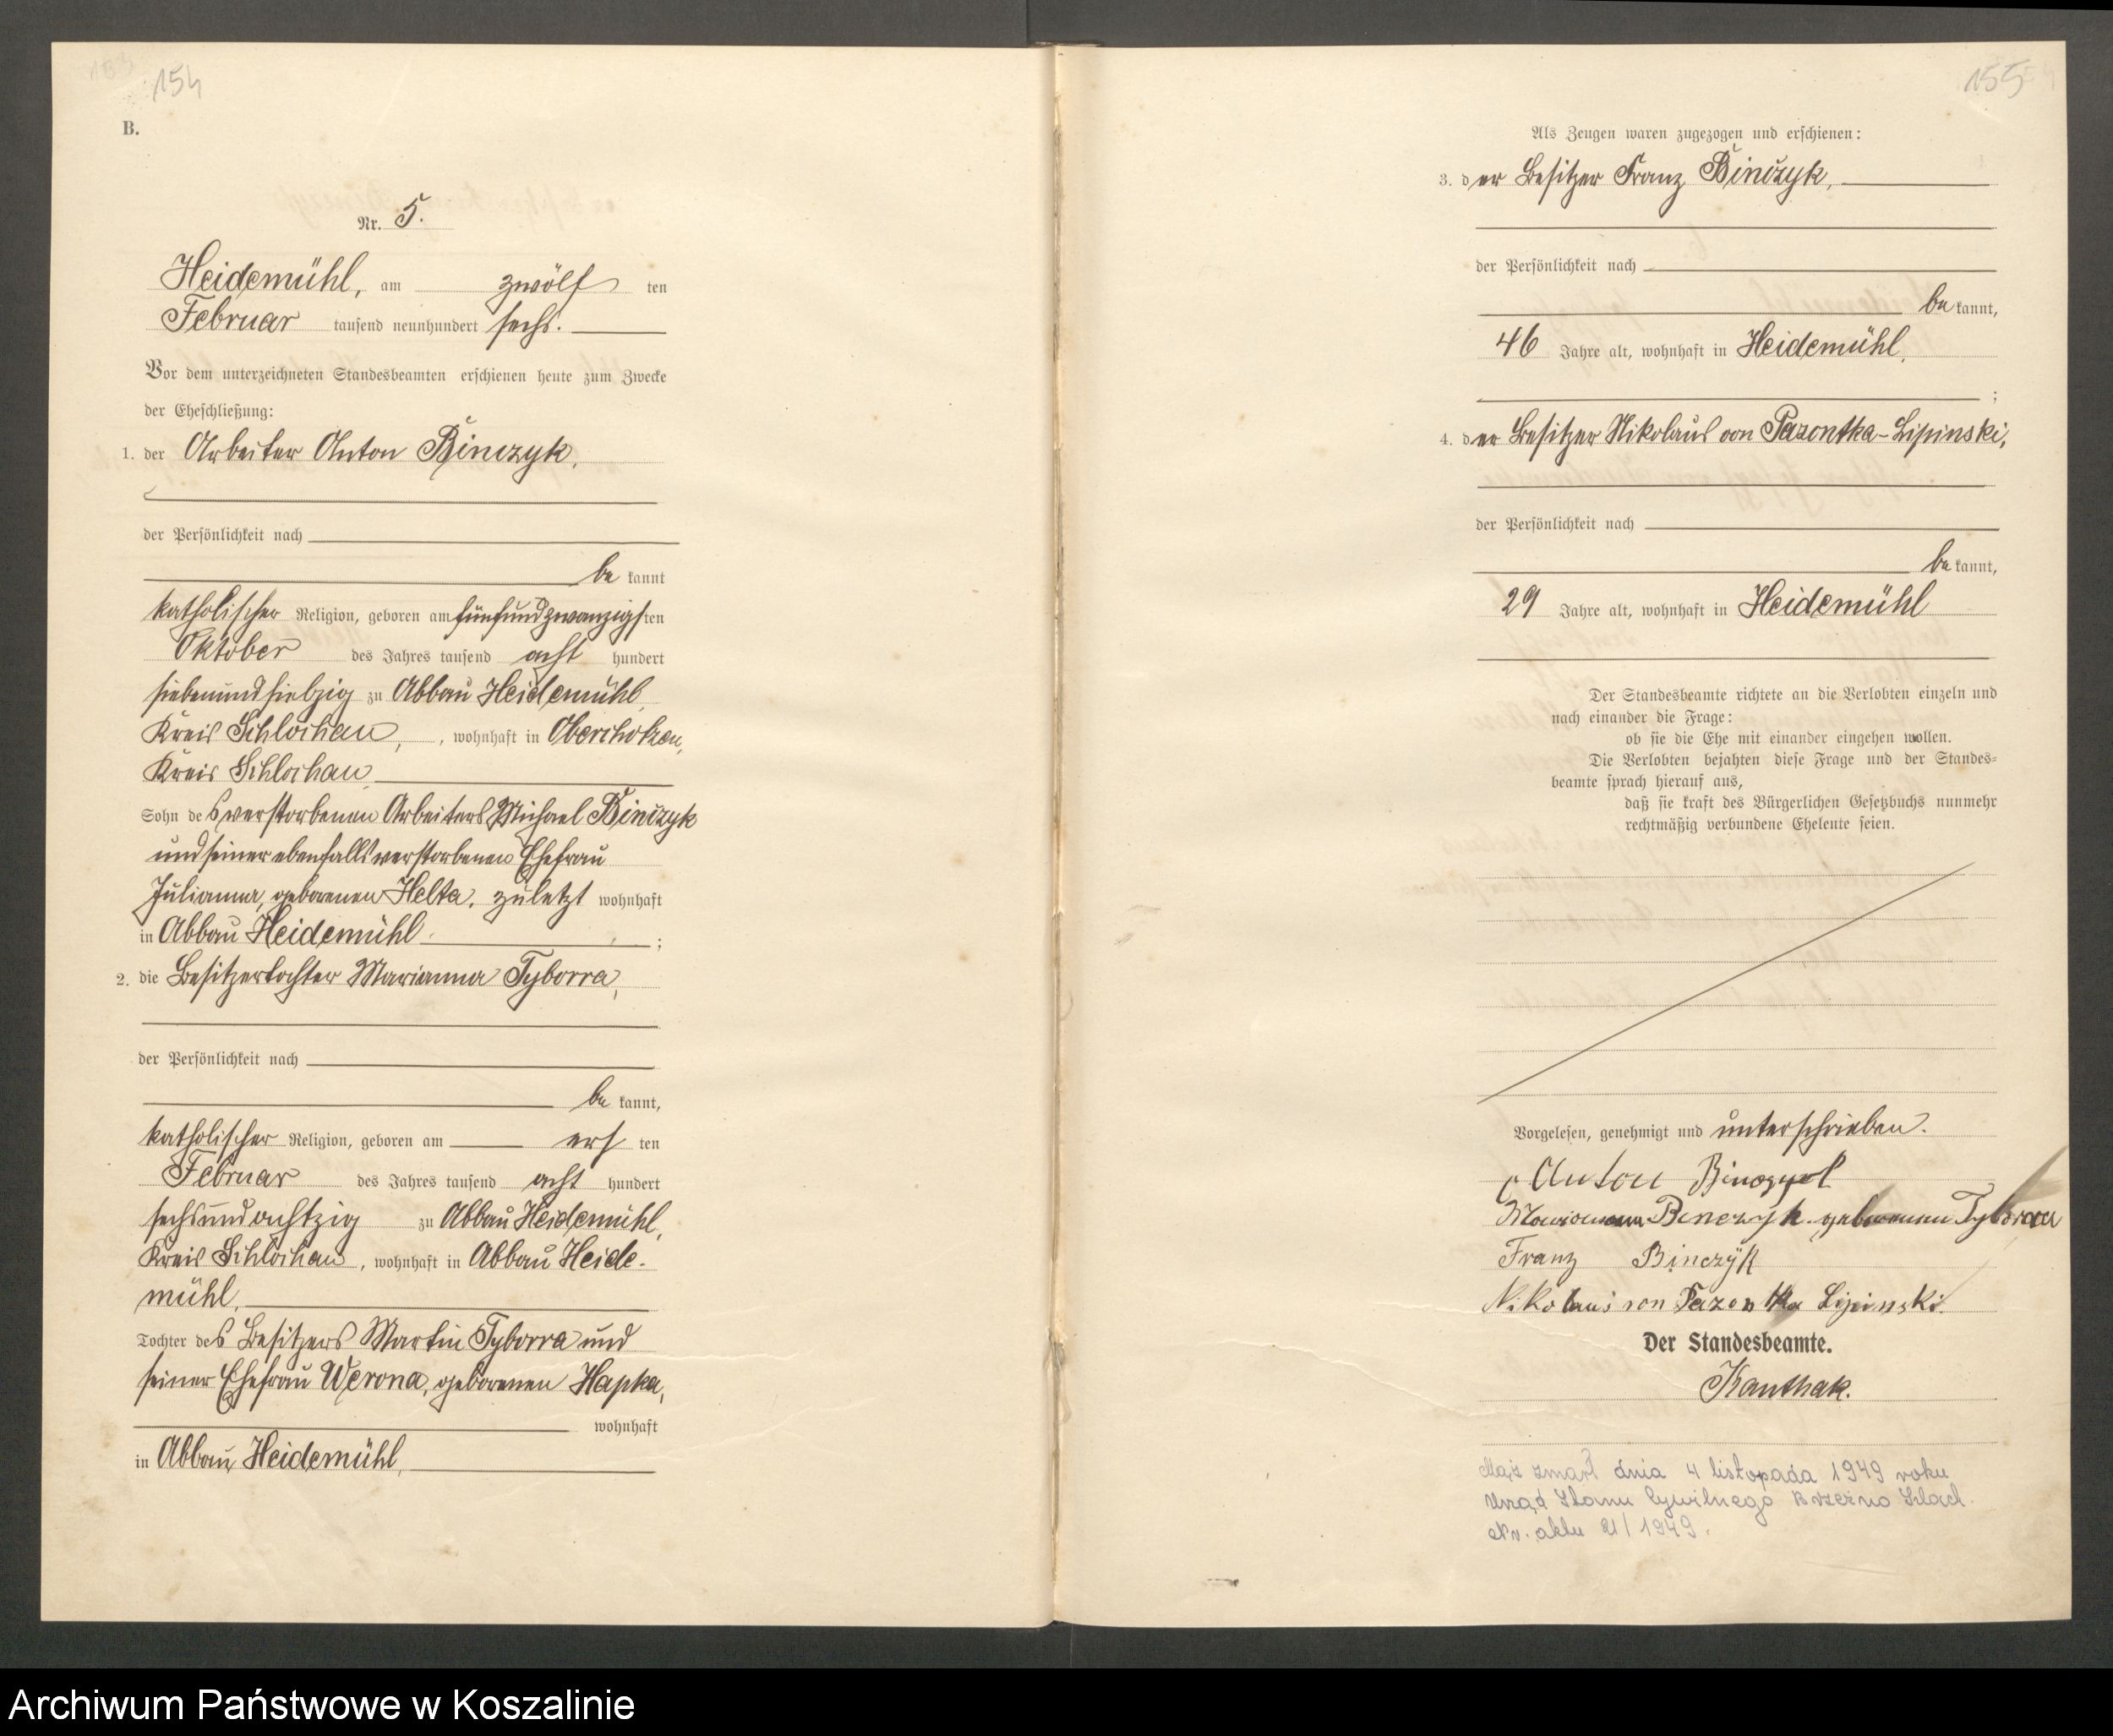 154
B.
Nr. 5.
Heidemühl, am zwölf ten
Februar tausend neunhundert sechs.
Vor dem unterzeichneten Standesbeamten erschienen heute zum Zwecke
der Eheschließung:
1. der Arbeiter Anton Binczyk,
der Persönlichkeit nach
be kannt
katholischer Religion, geboren am fünfundzwanzigsten
Oktober des Jahres tausend acht hundert
siebenundsiebzig zu Abbau Heidemühl,
Kreis Schlochau, wohnhaft in Oberchotzen,
Kreis Schlochau
Sohn des verstorbenen Arbeiters Michael Binczyk
und seiner ebenfalls verstorbenen Ehefrau
Julianna, geborenen Helta, zuletzt wohnhaft
in Abbau Heidemühl ;
2. die Besitzertochter Marianna Tyborra,
der Persönlichkeit nach
be kannt,
katholischer Religion, geboren am ers ten
Februar des Jahres tausend acht hundert
sechsundachtzig zu Abbau Heidemühl,
Kreis Schlochau, wohnhaft in Abbau Heide-
mühl,
Tochter des Besitzers Martin Tyborra und
seiner Ehefrau Werona, geborenen Hapka,
wohnhaft
in Abbau Heidemühl,
155
Als Zeugen waren zugezogen und erschienen:
3. der Besitzer Franz Binczyk,
der Persönlichkeit nach
be kannt,
46 Jahre alt, wohnhaft in Heidemühl,
;
4. der Besitzer Nikolaus von Pazontka-Lipinski,
der Persönlichkeit nach
be kannt,
29 Jahre alt, wohnhaft in Heidemühl
Der Standesbeamte richtete an die Verlobten einzeln und
nach einander die Frage:
ob sie die Ehe mit einander eingehen wollen.
Die Verlobten bejahten diese Frage und der Standes=
beamte sprach hierauf aus,
daß sie kraft des Bürgerlichen Gesetzbuchs nunmehr
rechtmäßig verbundene Eheleute seien.
Vorgelesen, genehmigt und unterschrieben.
Anton Binczyk
Marianna Binczyk geborenen Tyborra
Franz Binczyk
Nikolaus von Pazontka Lipinski.
Der Standesbeamte.
Kanthak.
Mąż zmarł dnia 4 listopada 1949 roku
Urząd Stanu Cywilnego Brzeźno Szlach.
Nr. aktu 21/1949.
Archiwum Państwowe w Koszalinie